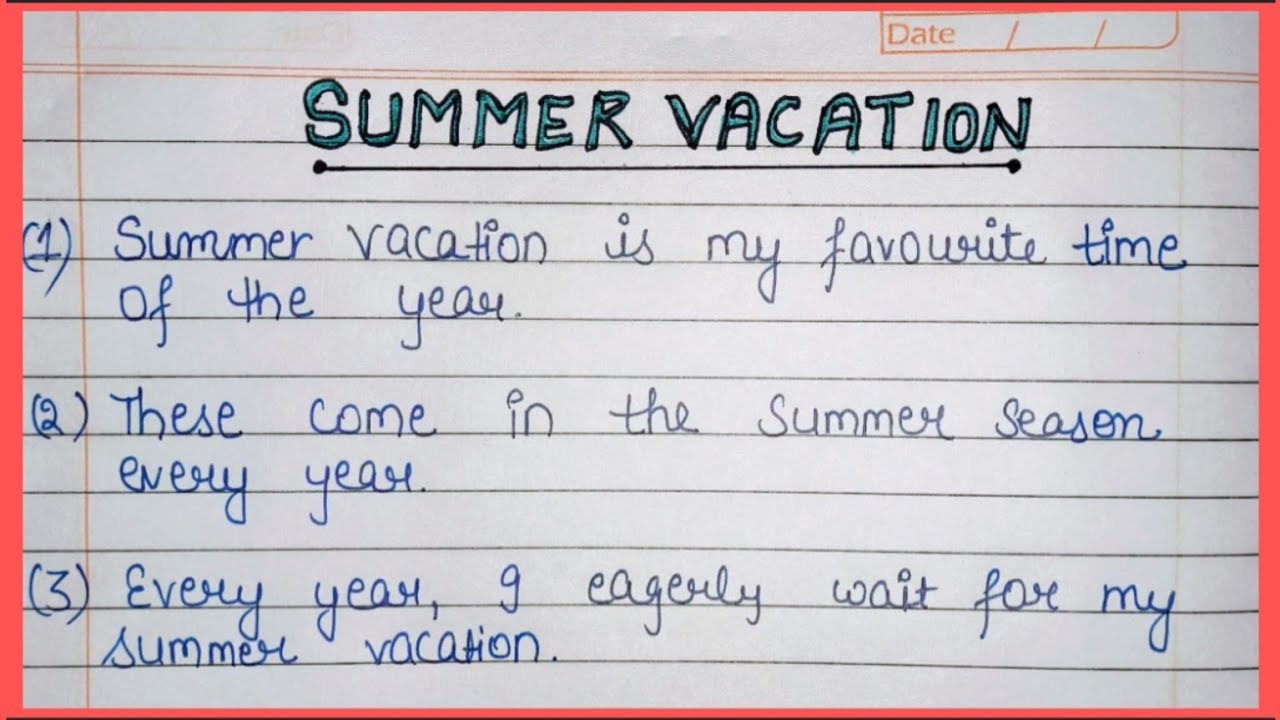 Date / /
SUMMER VACATION
(1) Summer vacation is my favourite time
of the year.
(2) These come in the Summer season
every year.
(3) Every year, I eagerly wait for my
summer vacation.